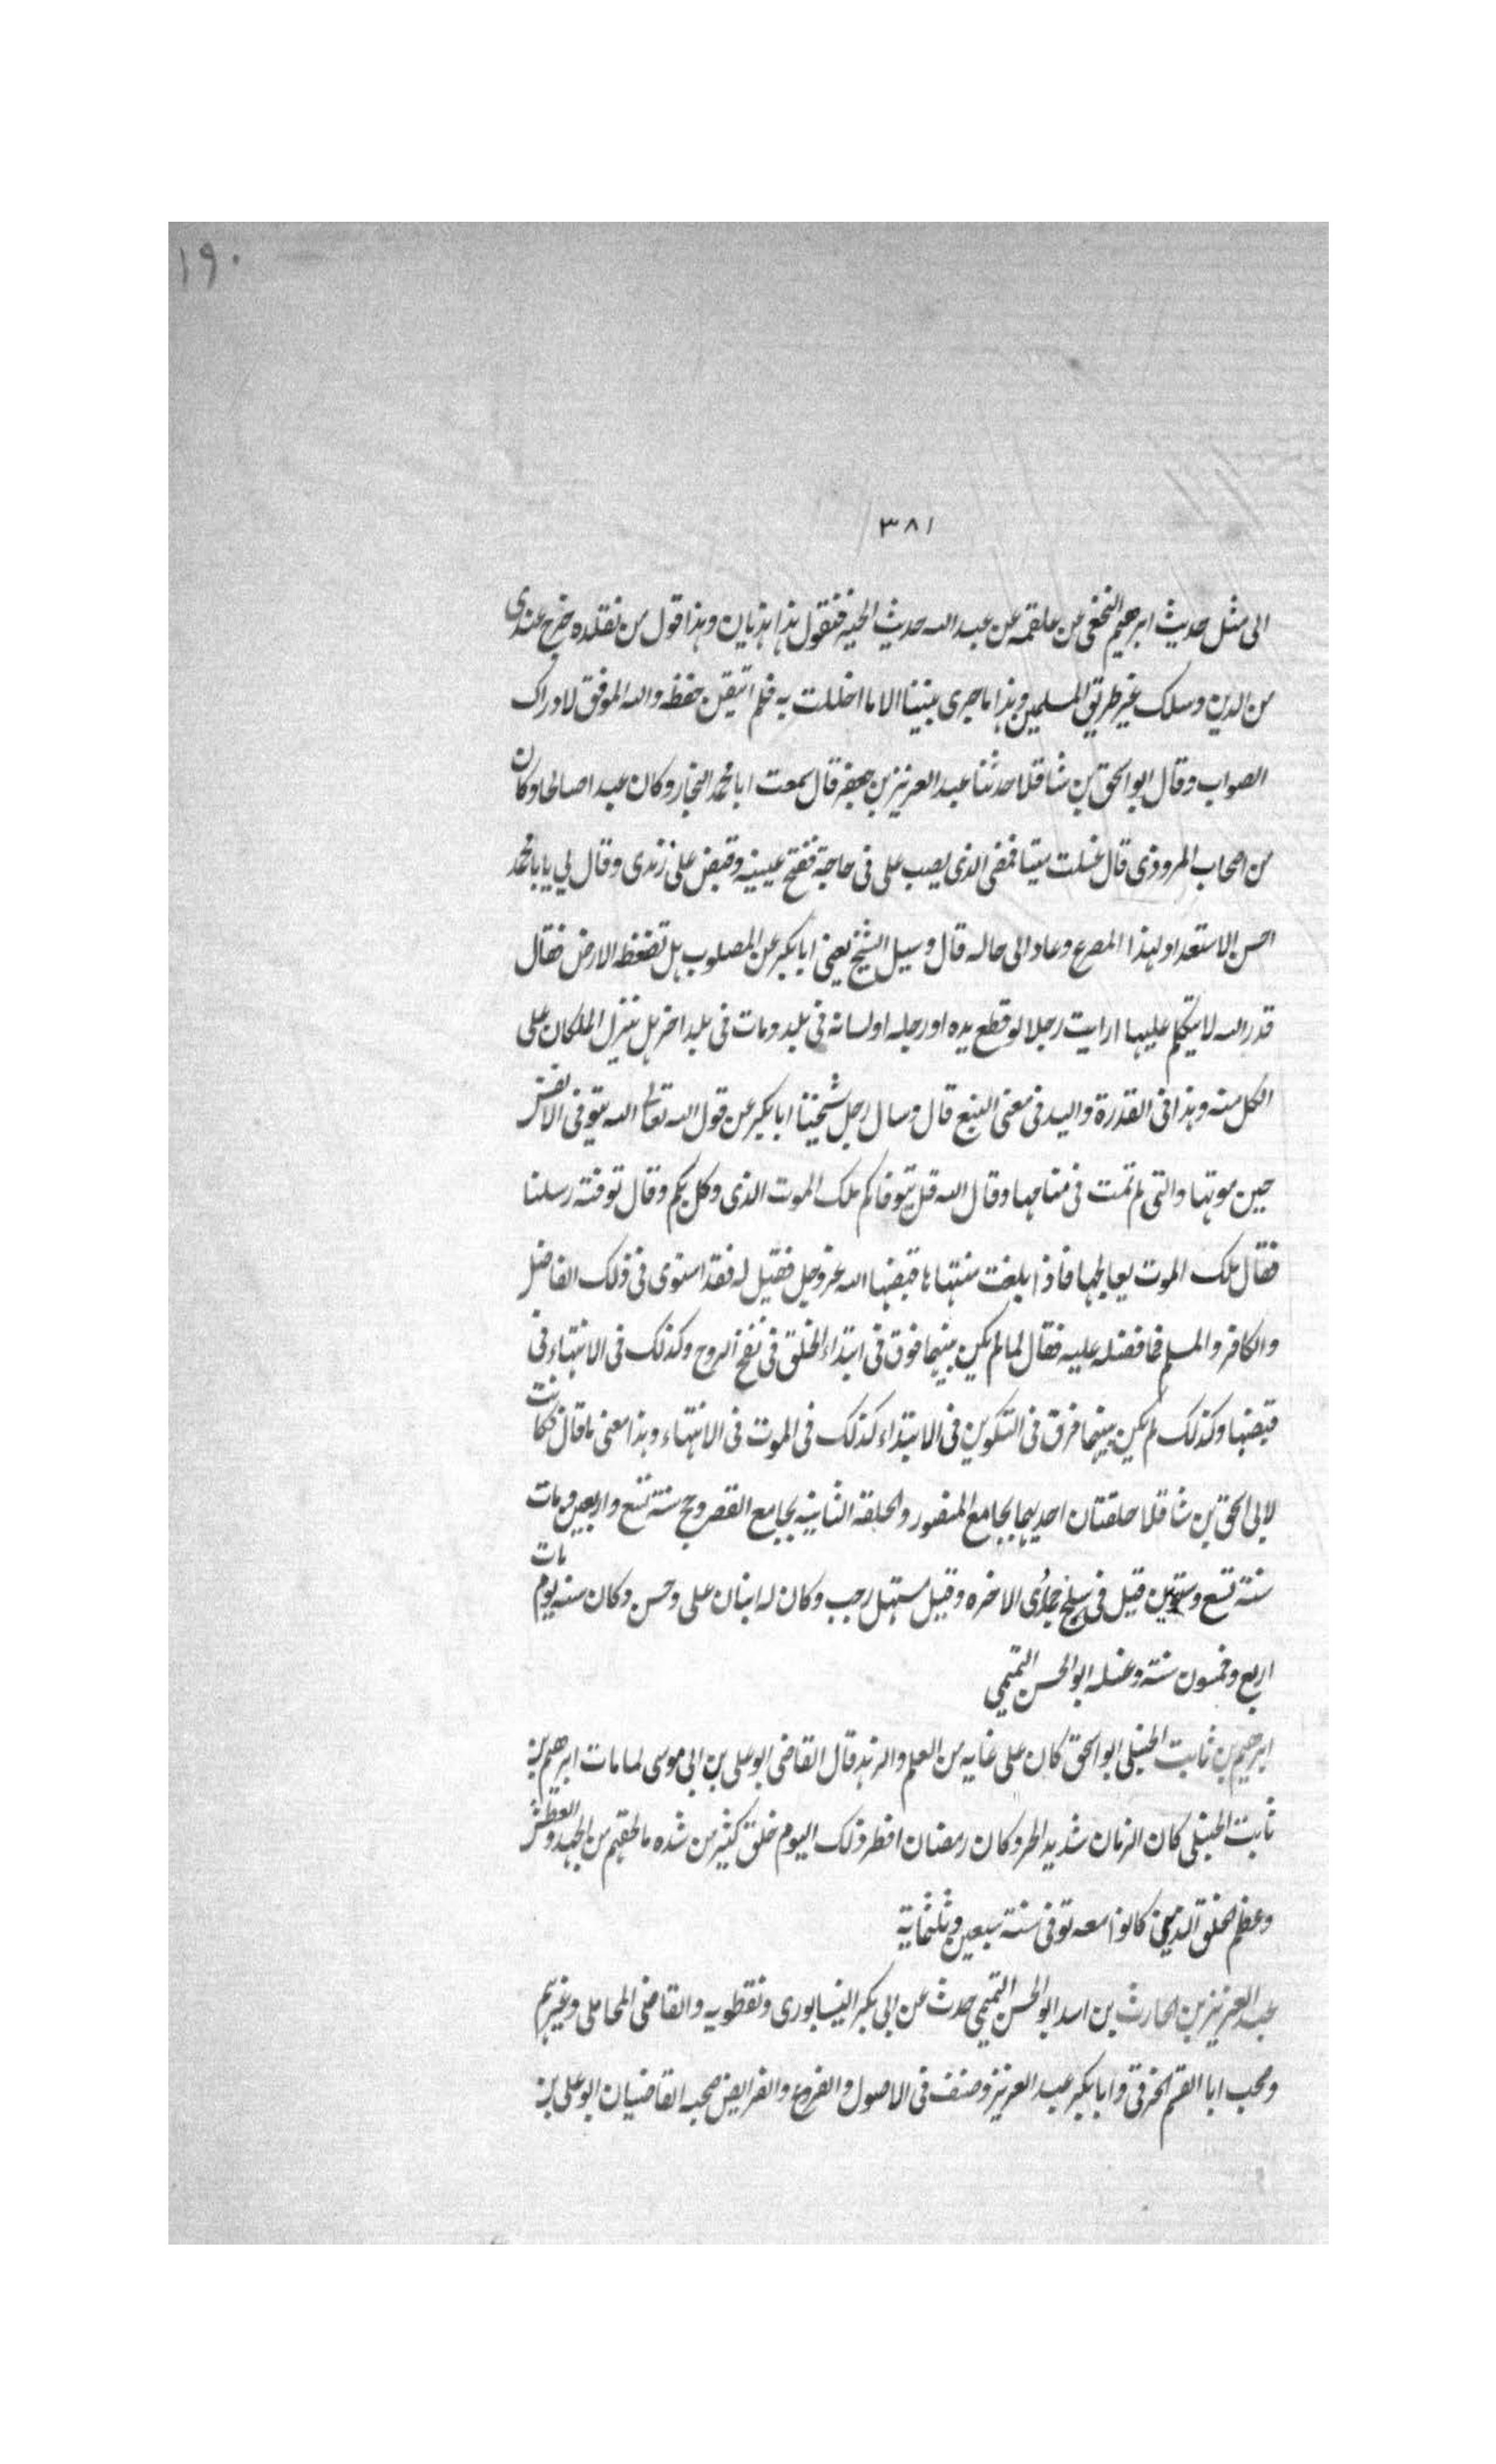 ١٩٠
٣٨١
الى مثل حديث ابرهيم النخعى عن علقمه عن عبد الله حديث الحبر فتقول هذا هذيان وهذا قول من تقلده خرج عندى
من الدين وسلك غير طريق المسلمين وهذا ما جرى بيننا الا ما اخللت به فلم اتيقن حفظه والله الموفق لادراك
الصواب وقال ابو اسحق بن شاقلا حدثنا عبد العزيز بن جعفر قال سمعت ابا محمد النجار وكان عبدا صالحا وكان
من اصحاب المروذى قال غسلت ميتا فمضى الذى يصب على فى حاجة ففتح عينيه وقبض على زندى وقال لي يابا محمد
احسن الاستعداد لهذا المصرع وعاد الى حاله قال وسيل الشيخ يعنى ابا بكر عن المصلوب هل تضغظه الارض فقال
قدر الله لا يتكلم عليها ارايت رجلا لو قطع يده او رجله او لسانه فى بلد ومات فى بلد اخر هل ينزل الملكان على
الكل منه وهذا فى القدرة واليد فى معنى التبع قال وسال رجل شيخنا ابا بكر عن قول الله تعالى الله يتوفى الانفس
حين موتها والتى لم تمت فى منامها وقال الله قل يتوفاكم ملك الموت الذى وكل بكم وقال توفته رسلنا
فقال ملك الموت يعالجها فاذا بلغت منتهاها قبضها الله عز وجل فقيل له فقد استوى فى ذلك الفاضل
والكافر والمسلم فما فضله عليه فقال لما لم يكن بينهما فرق فى ابتداء الخلق فى نفخ الروح وكذلك فى الانتهاء فى
قبضها وكذلك لم يكن بينهما فرق فى التكوين فى الابتداء كذلك فى الموت فى الانتهاء وهذا معنى ما قال فكانت
لابى اسحق بن شاقلا حلقتان احديهما بجامع المنصور والحلقه الثانيه بجامع القصر وحج سنة تسع واربعين ومات
سنة تسع وستين قيل فى سلخ جمادى الاخره وقيل مستهل رجب وكان له ابنان على وحسن وكان سنه يوم مات
اربع وخمسون سنة وغسله ابو الحسن التميمي
ابرهيم بن ثابت الحنبلى ابو اسحق كان على غايه من العلم والزهد قال القاضى ابو على بن ابى موسى لما مات ابرهيم بن
ثابت الحنبلى كان الزمان شديد الحر وكان رمضان افطر ذلك اليوم خلق كثير من شده ما لحقهم من الجهد والعطش
وعظم الخلق الذين كانوا معه توفى سنة سبعين وثلثماية
عبد العزيز بن الحارث بن اسد ابو الحسن التميمي حدث عن ابى بكر النيسابورى ونفطويه والقاضى المحاملى وغيرهم
وصحب ابا القسم الخرقى وابا بكر عبد العزيز وصنف فى الاصول والفروع والفرايض صحبه القاضيان ابو على بن